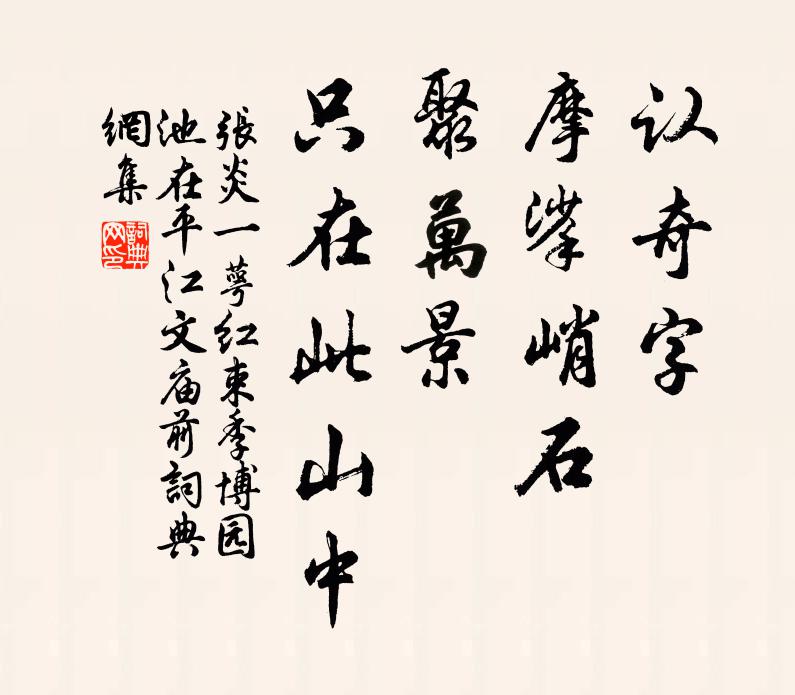 认奇字
摩挲峭石
聚萬景
只在此山中
張炎一萼红束季博园
池在平江文庙前詞典
網集
詞典
网印